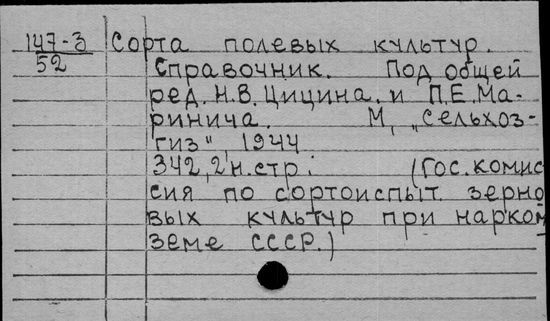 147-3 Сорта полевых культур.
52 Справочник. Под общей
ред. Н.В. Цицина. и П.Е. Ма-
ринича. М, „Сельхоз-
гиз“, 1944
342, 2 н. стр. (Гос. комис
сия по сортоиспыт. зерно
вых культур при нарком
земе СССР.)